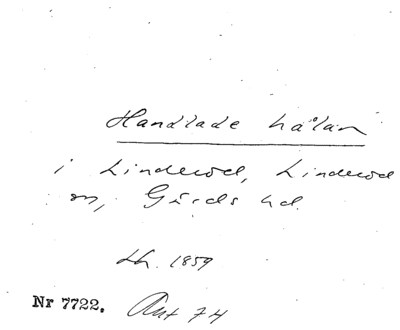 Handlade hålan
i Linderöd, Linderöd
sn, Gärds hd.
Lh. 1859
Nr 7722. Ant 74